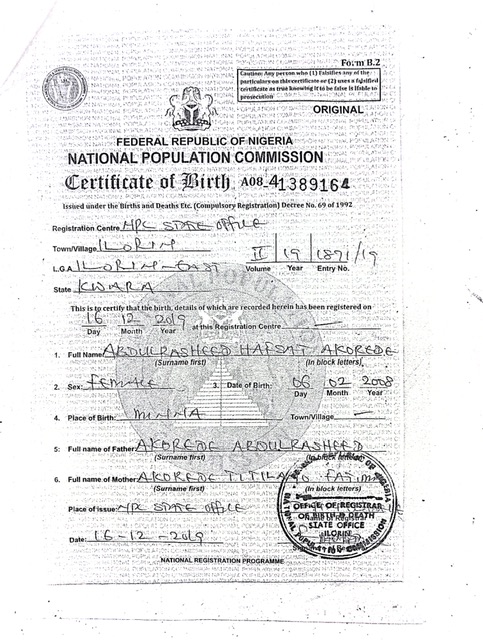 Form B.2
Caution: Any person who (1) Falsifies any of the
particulars on this certificate or (2) uses a falsified
certificate as true knowing it to be false is liable to
prosecution
ORIGINAL
FEDERAL REPUBLIC OF NIGERIA
NATIONAL POPULATION COMMISSION
Certificate of Birth A08 41389164
Issued under the Births and Deaths Etc. (Compulsory Registration) Decree No. 69 of 1992
Registration Centre NPC STATE OFFICE
Town/Village ILORIN
L.G.A ILORIN-EAST
II 19 1891/19
Volume Year Entry No.
State KWARA
This is to certify that the birth, details of which are recorded herein has been registered on
16 12 2019 at this Registration Centre
Day Month Year
1. Full Name ABDULRASHEED HAFSAT AKOREDE
(Surname first) (In block letters)
2. Sex: FEMALE 3. Date of Birth: 06 02 2008
Day Month Year
4. Place of Birth: MINNA Town/Village
5: Full name of Father AKOREDE ABDULRASHEED
(Surname first) (In block letters)
6. Full name of Mother AKOREDE
(Surname first) (In block letters)
Place of issue: NPC STATE OFFICE
Date: 16-12-2019
OFFICE OF REGISTRAR
OF BIRTH & DEATH
STATE OFFICE
ILORIN
NATIONAL REGISTRATION PROGRAMME